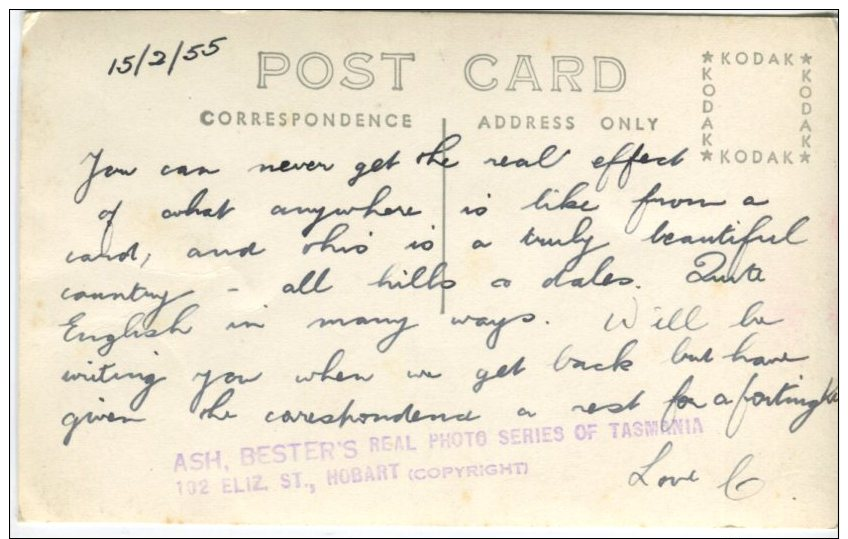 15/2/55
POST CARD
CORRESPONDENCE ADDRESS ONLY
★KODAK★
KODAK
KODAK
★KODAK★
You can never get the real effect
of what anywhere is like from a
card, and this is a truly beautiful
country - all hills & dales. Quite
English in many ways. Will be
writing you when we get back but have
given the corespondence a rest for a fortnight
ASH, BESTER'S REAL PHOTO SERIES OF TASMANIA
102 ELIZ. ST., HOBART (COPYRIGHT)
Love